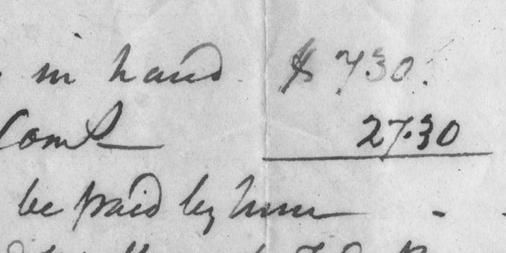 in hand $ 730.
Comt 27.30
be paid by him - -